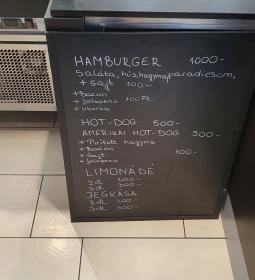 HAMBURGER 1000-
Saláta, hús, hagyma, paradicsom,
+ Sajt 100-
+ Bacon
+ Jalapeno 100 Ft.
+ Uborka
HOT-DOG 500-
AMERIKAI HOT-DOG 500-
+ Pirított hagyma
+ Bacon
+ Sajt 100-
+ Jalapeno
LIMONÁDÉ
2dl 200-
3dl 300-
JÉGKÁSA
2dl 200-
3dl 300-